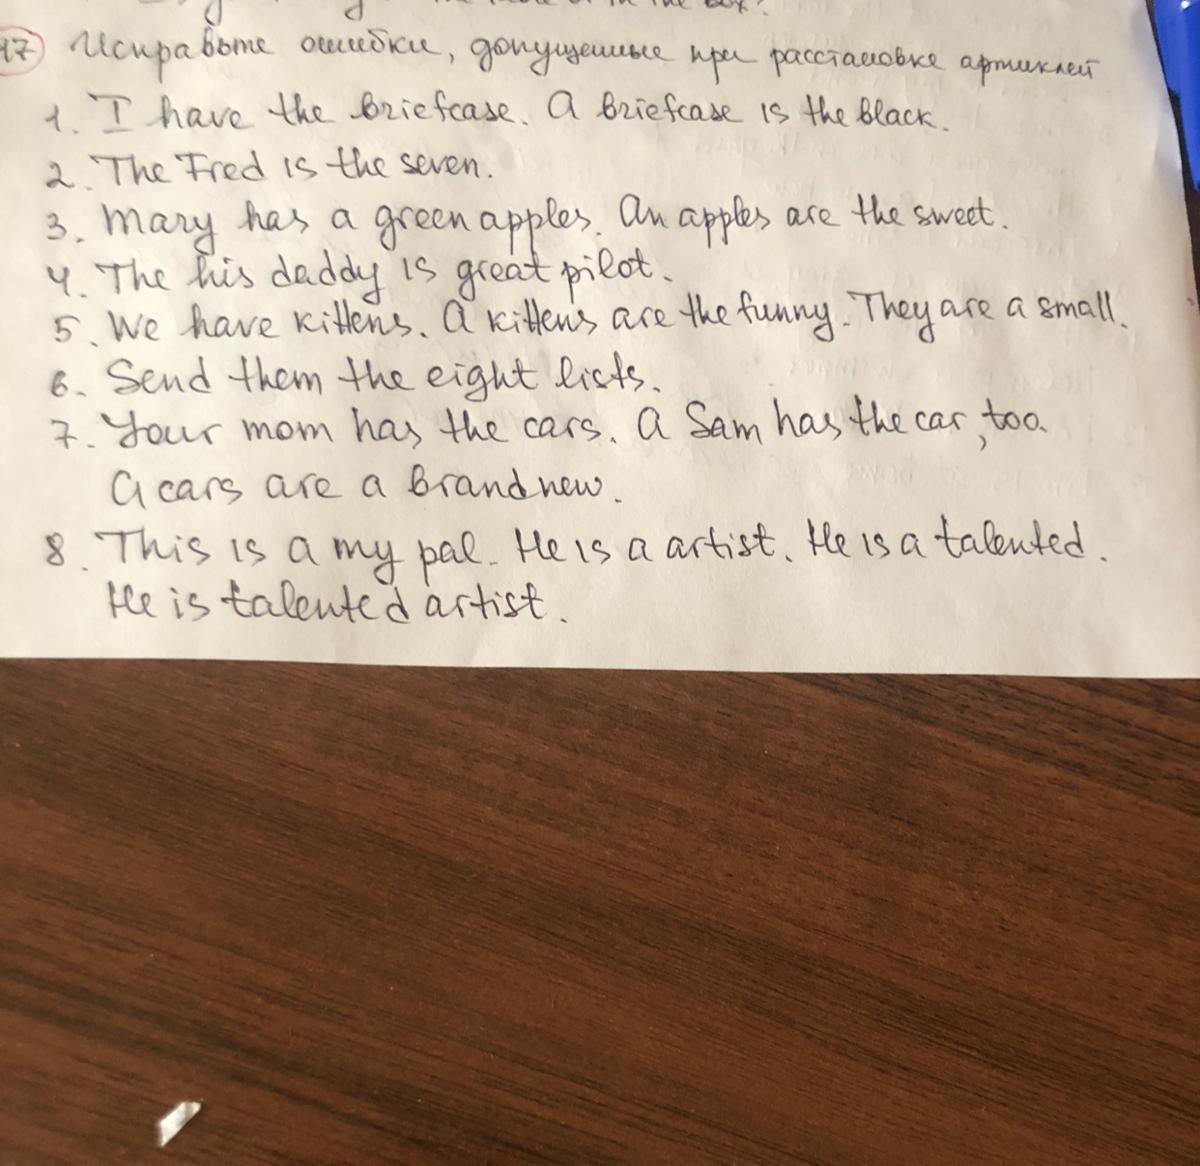 17 Исправьте ошибки, допущенные при расстановке артиклей
1. I have the briefcase. A briefcase is the black.
2. The Fred is the seven.
3. Mary has a green apples. An apples are the sweet.
4. The his daddy is great pilot.
5. We have kittens. A kittens are the funny. They are a small.
6. Send them the eight lists.
7. Your mom has the cars. A Sam has the car, too.
A cars are a brand new.
8. This is a my pal. He is a artist. He is a talented.
He is talented artist.